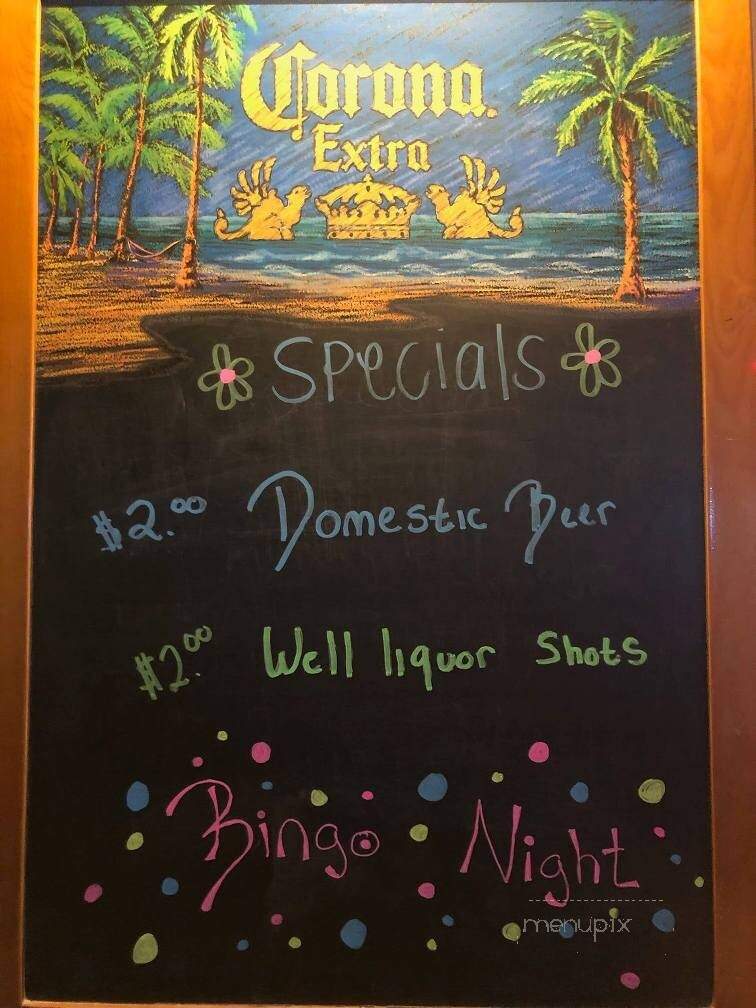 Corona.
Extra
Specials
$2.00 Domestic Beer
$2.00 Well liquor Shots
Bingo Night
menupix